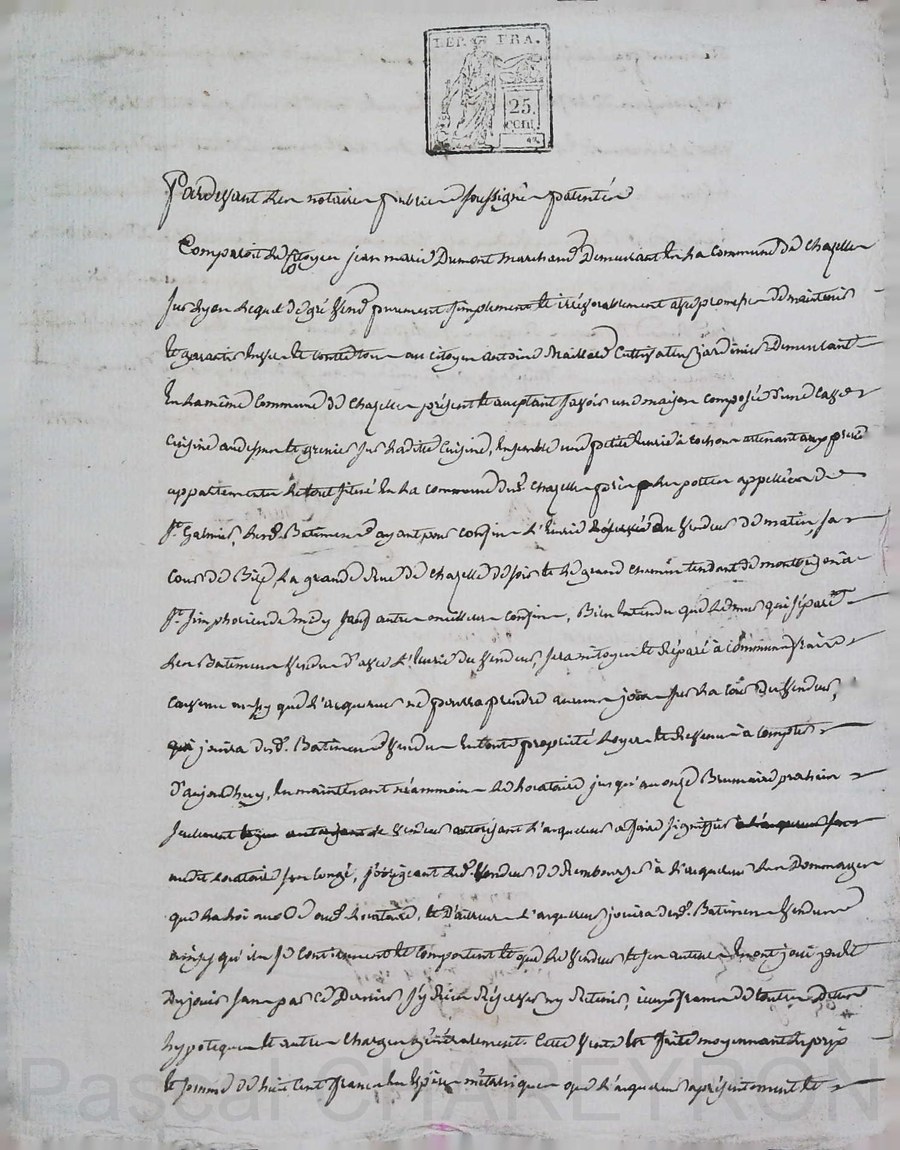 DEP. FRA.
25.
cent.
Pardevant les notaires publics soussignés patentés
Comparoit le citoyen jean marie Dumont marchand Demeurant en la commune de chazelle
sur Lyon lequel de gré vend purement simplement et irrévocablement avec promesse de maintenir
et garantir envers et contre tous au citoyen antoine Maillard Cultivateur jardinier Demeurant
En la même Commune de Chazelle présent et acceptant savoir une maison composée d'une cave
cuisine au dessus et grenier sur ladite Cuisine, Ensemble une petite écurie à cochons attenant aux
appartements le tout situé en la commune dud. Chazelle appellée de
St. Galmier, lesd. Bâtiments ayant pour confins l'Ecurie du vendeur de matin, sa
cour de Bize, la grande rue de chazelle de soir et le grand chemin tendant de montbrison à
St. simphorien de midy sauf autres meilleurs confins, Bien Entendu que le mur qui sépare
les Batiments vendus d'avec l'Ecurie du vendeur, sera mitoyen et réparé à communs fraix
convenu aussy que l'acquereur ne pourra prendre aucuns jours sur la cour du vendeur,
qui jouira desd. Batiments vendus en toute propriété à compter
D'aujourd'huy, En maintenant néanmoins le locataire jusqu'au onze Brumaire prochain
seulement le vendeur autorisant l'acquereur a faire signifier
audit locataire son congé, s'obligeant led. vendeur de Rembourser à l'acquereur les Dommages
que la loi aud. locataire, et D'ailleurs l'acquereur jouira desd. Batiments vendus
ainsy qu'ils se contiennent et comportent et que le vendeur et ses auteurs En ont joui
Du jouir sans par ce Dernier s'y Rien Réserver ny Retenir, francs de toutes Dettes
hypoteques et autres charges généralement. Cette vente est faite moyennant le prix
et somme de huit cent francs En Espèces métalliques que l'acquereur a présentement
Pascal CHAREYRON